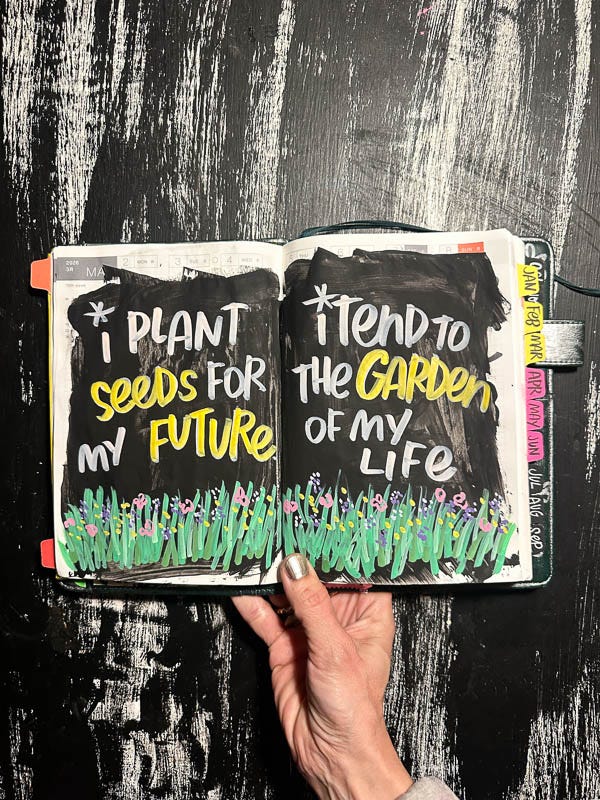 2026
MA
2 MON
3 TUE
4 WED
THU
6
8 SUN
*i PLANT
SEEDS FOR
MY FUTURE
*i TEND TO
THE GARDEN
OF MY
LIFE
JAN
FEB
MAR
APR
MAY
JUN
JUL
AUG
SEP